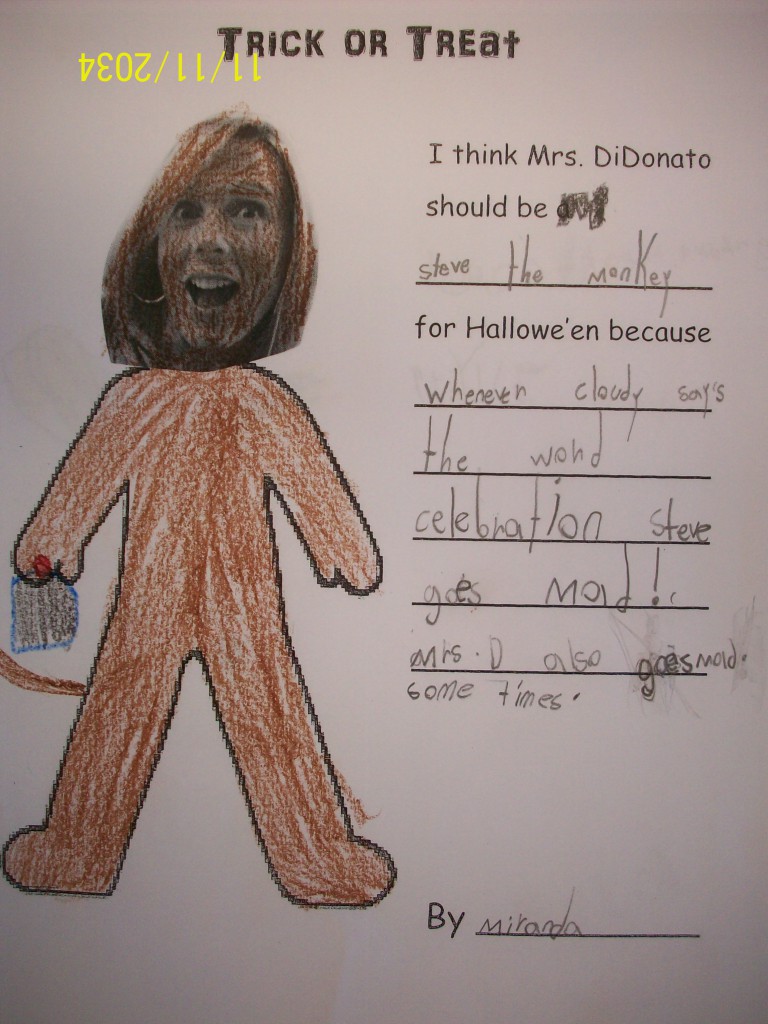 TRICK OR TREAT
11/11/2034
I think Mrs. DiDonato
should be
steve the monkey
for Hallowe'en because
Whenever cloudy say's
the word
celebration Steve
goes mad!
Mrs. D also goes mad.
some times.
By Miranda